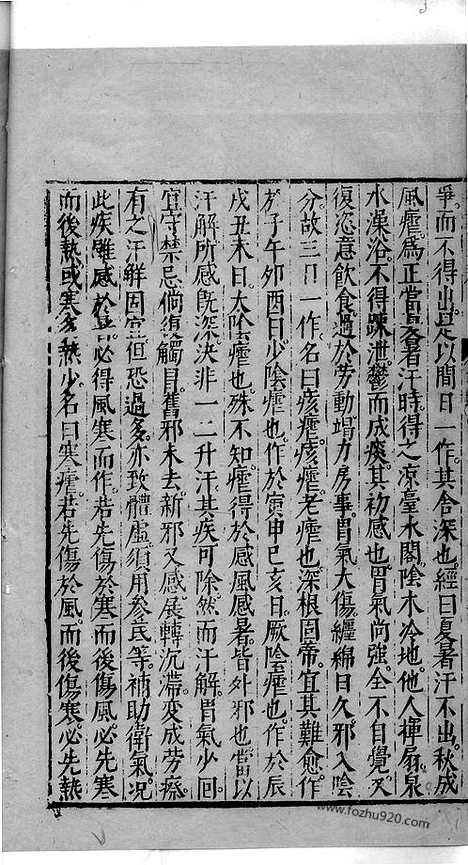 爭。而不得出。是以間日一作。其舍深也。經曰夏暑汗不出。秋成
風瘧。為正當夏暑汗時。得之凉臺水閣。陰木冷地。他人揮扇。泉
水澡浴。不得踈泄。鬱而成痰。其初感也。胃氣尚強。全不自覺。又
復恣意飲食。過於勞動。竭力房事。胃氣大傷。纏綿日久。邪入陰
分。故三日一作。名曰痎瘧。痎瘧。老瘧也。深根固蒂。宜其難愈。作
於子午卯酉日。少陰瘧也。作於寅申巳亥日。厥陰瘧也。作於辰
戌丑未日。太陰瘧也。殊不知瘧得於感風感暑。皆外邪也。當以
汗解。所感既深。決非一二升汗。其疾可除。然而汗解。胃氣少回。
宜守禁忌。倘復觸冒。舊邪未去。新邪又感。展轉沉滯。變成勞瘵。
有之汗解固宜。但恐過多。亦致體虛。須用參芪等。補助衛氣。况
此疾雖感於暑。必得風寒而作。若先傷於寒。而後傷風。必先寒
而後熱。或寒多熱少。名曰寒瘧。若先傷於風。而後傷寒。必先熱
www.fozhu920.com